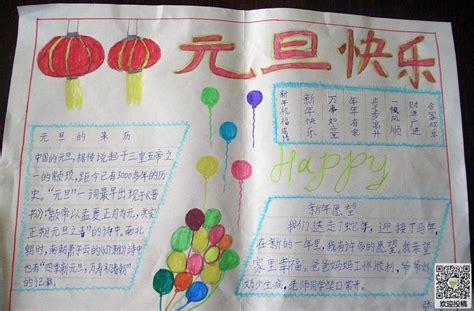 元旦快乐
新年祝福成语
新年快乐
万事如意
年年有余
步步高升
一帆风顺
财源广进
合家欢乐
元旦的来历
中国的元旦,据传说起于三皇五帝之
一的颛顼,距今已有3000多年的历
史。“元旦”一词最早出现于《晋
书》:“颛帝以孟夏正月为元,其实
正朔元旦之春”的诗中。南北
朝时,南朝萧子云的《介雅》诗中
也有“四季新元旦,万寿初春朝”
的记载。
Happy
新年愿望
我们送走了蛇年,迎接了马年,
在新的一年里,我有许多的愿望,我希望
家里幸福,爸爸妈妈工作顺利,爷爷
奶奶少生病,老师同学笑口常开。
欢迎投稿